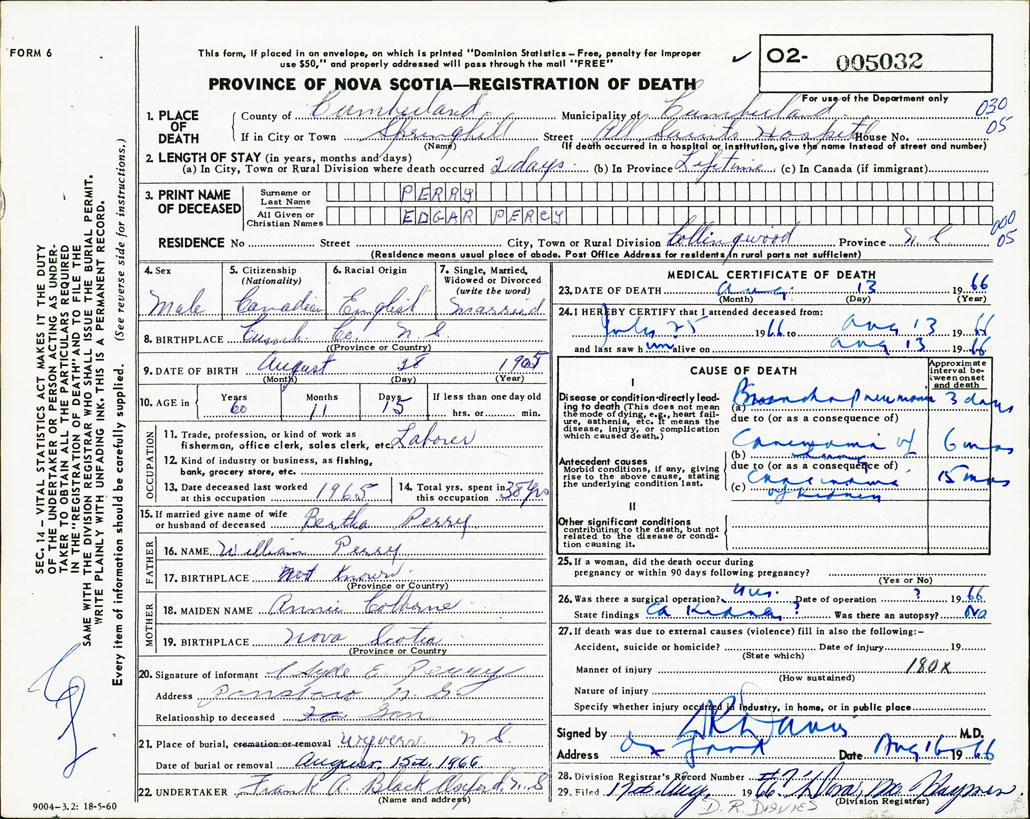 FORM 6
This form, if placed in an envelope, on which is printed "Dominion Statistics – Free, penalty for improper
use $50," and properly addressed will pass through the mail "FREE"
PROVINCE OF NOVA SCOTIA—REGISTRATION OF DEATH
02- 005032
For use of the Department only
030
05
1. PLACE OF DEATH
County of Cumberland Municipality of Cumberland
If in City or Town Springhill Street All Saints Hospital House No.
(Name) (If death occurred in a hospital or institution, give the name instead of street and number)
2. LENGTH OF STAY (in years, months and days)
(a) In City, Town or Rural Division where death occurred 2 days. (b) In Province Lifetime (c) In Canada (if immigrant)
3. PRINT NAME OF DECEASED
Surname or Last Name PERRY
All Given or Christian Names EDGAR PERCY
000
05
RESIDENCE No Street City, Town or Rural Division Collingwood Province N S
(Residence means usual place of abode. Post Office Address for residents in rural parts not sufficient)
4. Sex Male
5. Citizenship (Nationality) Canadian
6. Racial Origin English
7. Single, Married, Widowed or Divorced (write the word) Married
8. BIRTHPLACE Cumb. Co. N S
(Province or County)
9. DATE OF BIRTH August 28 1905
(Month) (Day) (Year)
10. AGE in Years 60 Months 11 Days 15 If less than one day old hrs. or min.
OCCUPATION
11. Trade, profession, or kind of work as fisherman, office clerk, sales clerk, etc. Laborer
12. Kind of industry or business, as fishing, bank, grocery store, etc.
13. Date deceased last worked at this occupation 1965
14. Total yrs. spent in this occupation 38 yrs
15. If married give name of wife or husband of deceased Bertha Perry
FATHER
16. NAME William Perry
17. BIRTHPLACE Not Known
(Province or Country)
MOTHER
18. MAIDEN NAME Annie
19. BIRTHPLACE Nova Scotia
(Province or Country)
20. Signature of informant Clyde E. Perry
Address N S
Relationship to deceased Son
21. Place of burial, cremation or removal Wyvern N S.
Date of burial or removal August 15th 1966
22. UNDERTAKER Frank A. Black Oxford N S
(Name and address)
MEDICAL CERTIFICATE OF DEATH
23. DATE OF DEATH Aug. 13 1966
(Month) (Day) (Year)
24. I HEREBY CERTIFY that I attended deceased from:
July 25 1966 to Aug 13 1966
and last saw him alive on Aug 13 1966
CAUSE OF DEATH
Approximate interval between onset and death
I
Disease or condition directly leading to death (This does not mean the mode of dying, e.g., heart failure, asthenia, etc. It means the disease, injury, or complication which caused death.)
(a) Broncho Pneumonia 3 days
due to (or as a consequence of)
Antecedent causes
Morbid conditions, if any, giving rise to the above cause, stating the underlying condition last.
(b) Carcinoma of 6 mos
due to (or as a consequence of)
(c) Carcinoma of Kidney 15 mos
II
Other significant conditions
contributing to the death, but not related to the disease or condition causing it.
25. If a woman, did the death occur during pregnancy or within 90 days following pregnancy?
(Yes or No)
26. Was there a surgical operation? Yes. Date of operation ? 1966
State findings Ca Kidney Was there an autopsy? No
27. If death was due to external causes (violence) fill in also the following:–
Accident, suicide or homicide? Date of injury 19
(State which)
Manner of injury 180X
(How sustained)
Nature of injury
Specify whether injury occurred in industry, in home, or in public place
Signed by D R Davies M.D.
Address Oxford Date Aug 16 1966
28. Division Registrar's Record Number
29. Filed 17th Aug. 1966
(Division Registrar)
D. R. DAVIES
9004–3.2: 18-5-60
SEC. 14 – VITAL STATISTICS ACT MAKES IT THE DUTY
OF THE UNDERTAKER OR PERSON ACTING AS UNDER-
TAKER TO OBTAIN ALL THE PARTICULARS REQUIRED
IN THE "REGISTRATION OF DEATH" AND TO FILE THE
SAME WITH THE DIVISION REGISTRAR WHO SHALL ISSUE THE BURIAL PERMIT.
WRITE PLAINLY WITH UNFADING INK. THIS IS A PERMANENT RECORD.
Every item of information should be carefully supplied. (See reverse side for instructions.)